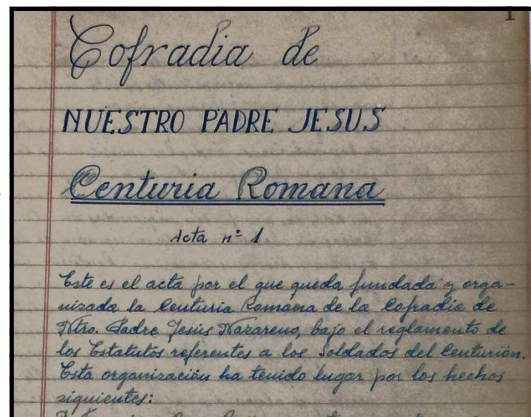 1
Cofradia de
NUESTRO PADRE JESUS
Centuria Romana
Acta nº 1
Este es el acta por el que queda fundada y orga-
nizada la Centuria Romana de la Cofradia de
Ntro. Padre Jesús Nazareno, bajo el reglamento de
los Estatutos referentes a los Soldados del Centurión.
Esta organización ha tenido lugar por los hechos
siguientes: